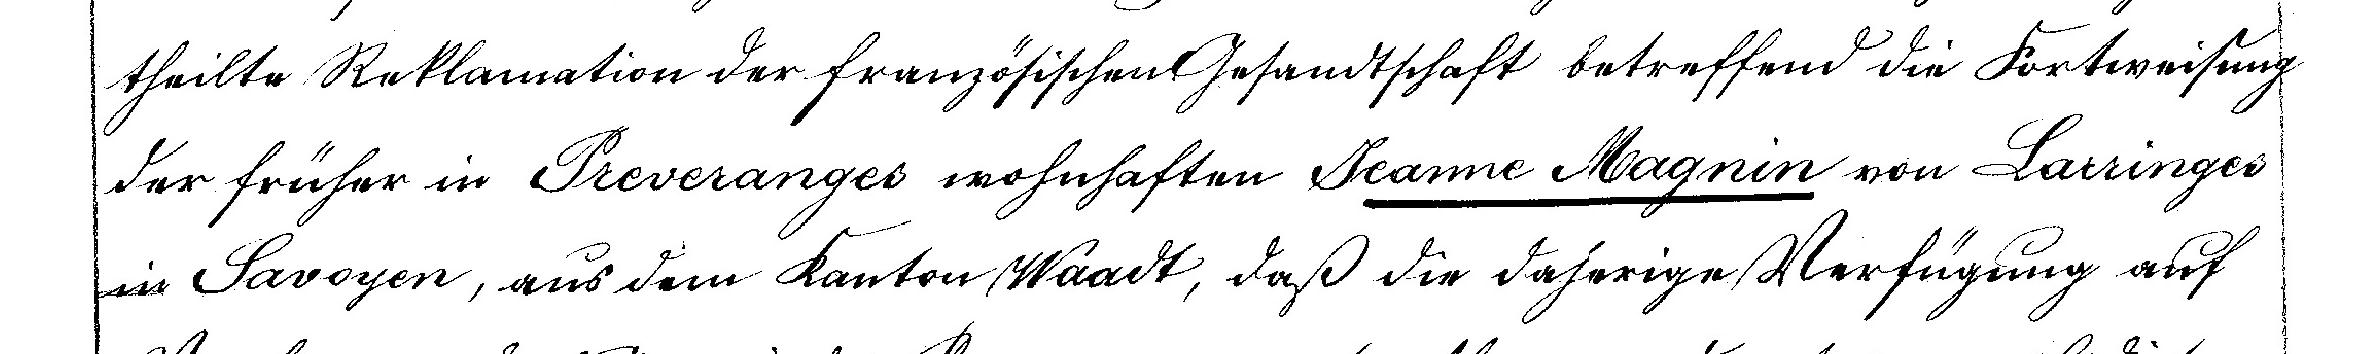 theilte Reklamation der französischen Gesandtschaft betreffend die Fortweisung
der früher in Preveranges wohnhaften Jeanne Magnin von Larringes
in Savoyen, aus dem Kanton Waadt, daß die daherige Verfügung auf